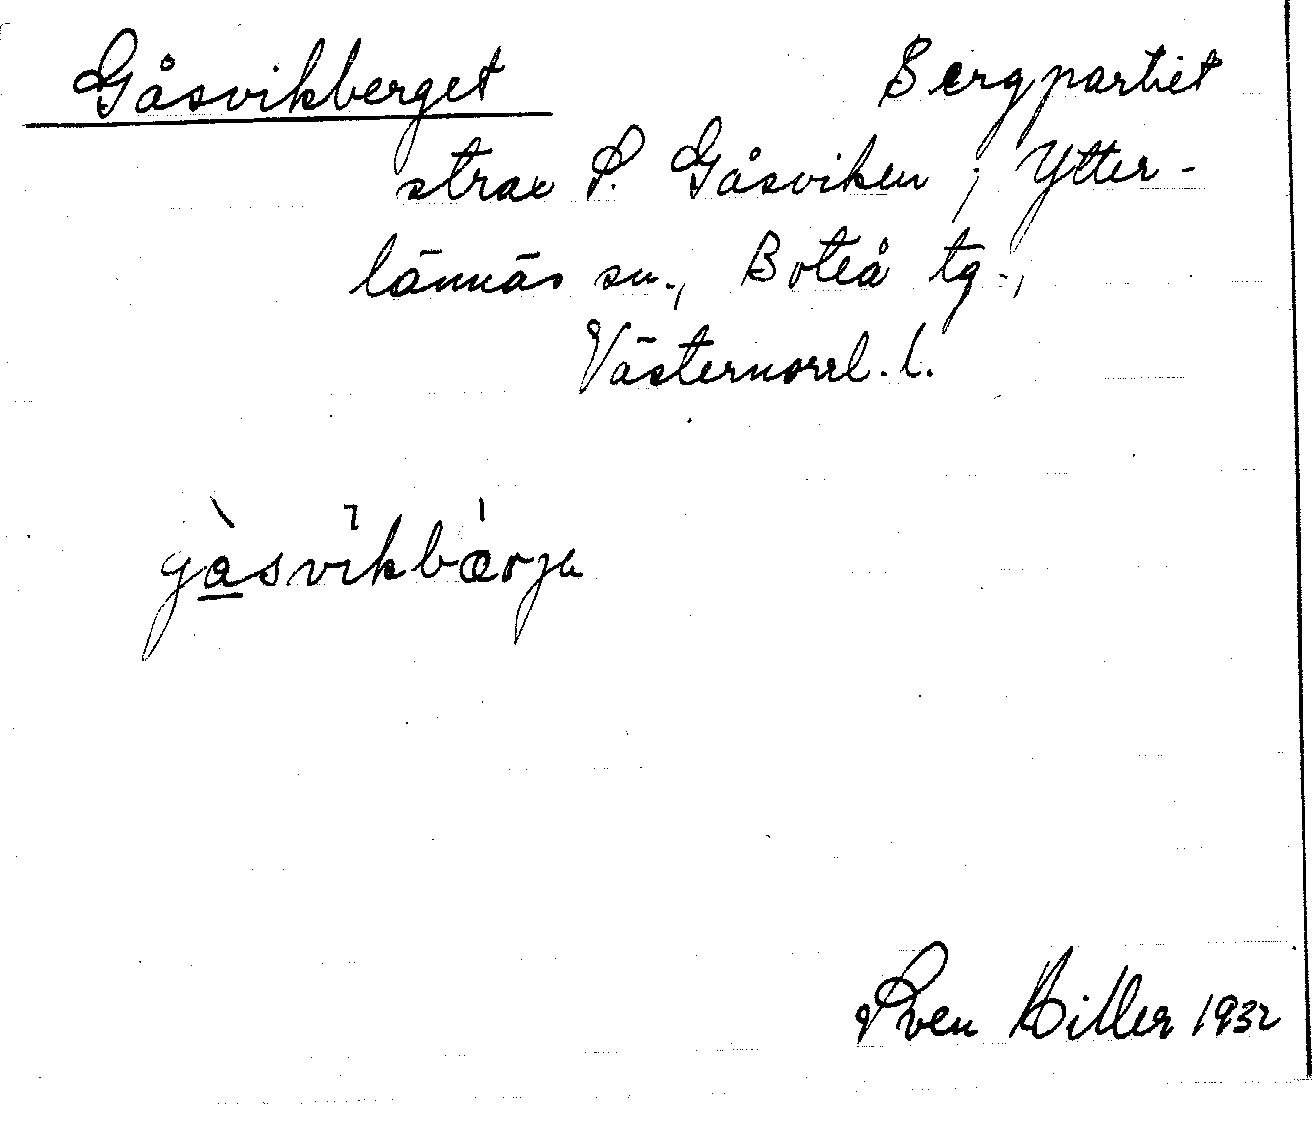 Gåsvikberget Bergpartiet
strax S. Gåsviken, Ytter-
lännäs sn., Boteå tg.,
Västernorrl. l.
gàsvikbærjɐ
Sven Hiller 1932